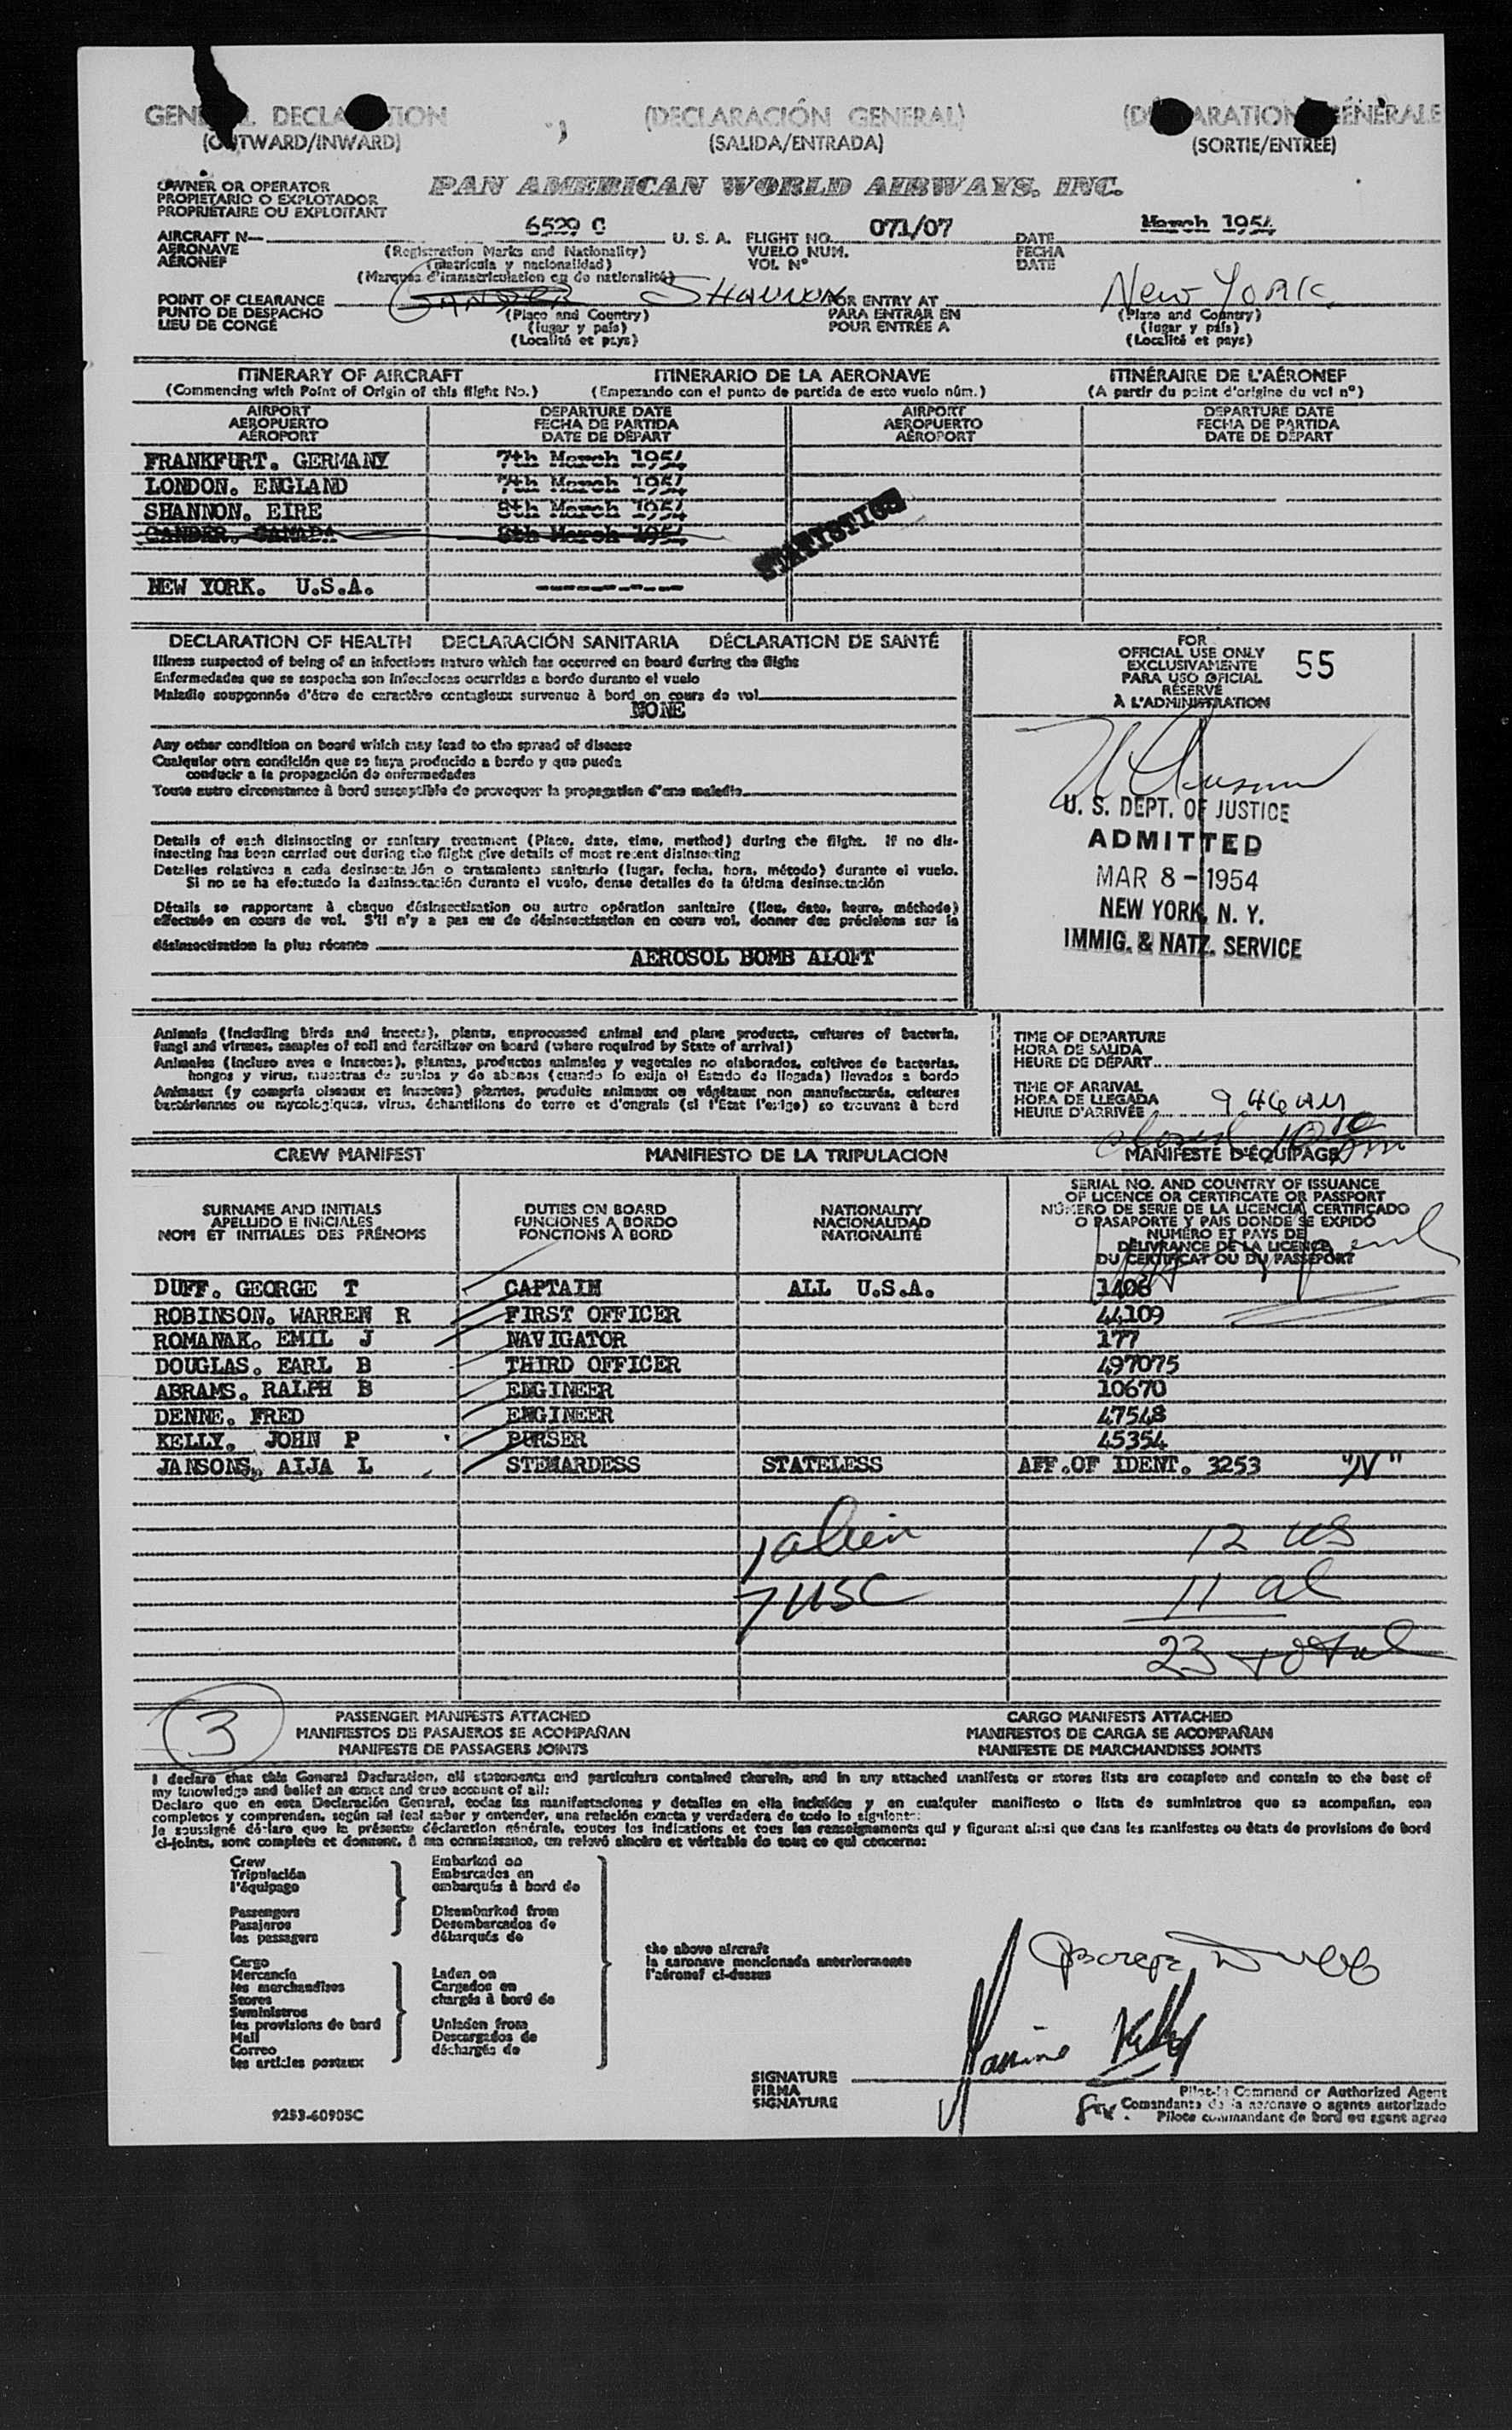 GENERAL DECLARATION (DECLARACIÓN GENERAL) (DÉCLARATION GÉNÉRALE
(OUTWARD/INWARD) (SALIDA/ENTRADA) (SORTIE/ENTRÉE)
OWNER OR OPERATOR
PROPIETARIO O EXPLOTADOR
PROPRIÉTAIRE OU EXPLOITANT
PAN AMERICAN WORLD AIRWAYS, INC.
AIRCRAFT N— 6529 C U. S. A. FLIGHT NO. 071/07 DATE March 1954
AERONAVE (Registration Marks and Nationality) VUELO NUM. FECHA
AÉRONEF (Matrícula y nacionalidad) VOL N° DATE
(Marques d'immatriculation ou de nationalité)
POINT OF CLEARANCE GANDER SHANNON FOR ENTRY AT New York
PUNTO DE DESPACHO (Place and Country) PARA ENTRAR EN (Place and Country)
LIEU DE CONGÉ (lugar y país) POUR ENTRÉE A (lugar y país)
(Localité et pays) (Localité et pays)
ITINERARY OF AIRCRAFT ITINERARIO DE LA AERONAVE ITINÉRAIRE DE L'AÉRONEF
(Commencing with Point of Origin of this flight No.) (Empezando con el punto de partida de este vuelo núm.) (A partir du point d'origine du vol n°)
AIRPORT DEPARTURE DATE AIRPORT DEPARTURE DATE
AEROPUERTO FECHA DE PARTIDA AEROPUERTO FECHA DE PARTIDA
AÉROPORT DATE DE DÉPART AÉROPORT DATE DE DÉPART
FRANKFURT. GERMANY 7th March 1954
LONDON. ENGLAND 7th March 1954
SHANNON. EIRE 8th March 1954
GANDER. CANADA 8th March 1954
STATISTICS
NEW YORK. U.S.A. ----------
DECLARATION OF HEALTH DECLARACIÓN SANITARIA DÉCLARATION DE SANTÉ
Illness suspected of being of an infectious nature which has occurred on board during the flight
Enfermedades que se sospecha son infecciosas ocurridas a bordo durante el vuelo
Maladie soupçonnée d'être de caractère contagieux survenue à bord en cours de vol
NONE
Any other condition on board which may lead to the spread of disease
Cualquier otra condición que se haya producido a bordo y que pueda
conducir a la propagación de enfermedades
Toute autre circonstance à bord susceptible de provoquer la propagation d'une maladie
Details of each disinsecting or sanitary treatment (Place, date, time, method) during the flight. If no dis-
insecting has been carried out during the flight give details of most recent disinsecting
Detalles relativos a cada desinsectación o tratamiento sanitario (lugar, fecha, hora, método) durante el vuelo.
Si no se ha efectuado la desinsectación durante el vuelo, dense detalles de la última desinsectación
Détails se rapportant à chaque désinsectisation ou autre opération sanitaire (lieu, date, heure, méthode)
effectuée en cours de vol. S'il n'y a pas eu de désinsectisation en cours vol, donner des précisions sur la
désinsectisation la plus récente
AEROSOL BOMB ALOFT
FOR
OFFICIAL USE ONLY
EXCLUSIVAMENTE
PARA USO OFICIAL
RÉSERVÉ
À L'ADMINISTRATION
55
U. S. DEPT. OF JUSTICE
ADMITTED
MAR 8 - 1954
NEW YORK, N. Y.
IMMIG. & NATZ. SERVICE
Animals (including birds and insects), plants, unprocessed animal and plane products, cultures of bacteria,
fungi and viruses, samples of soil and fertilizer on board (where required by State of arrival)
Animales (incluso aves e insectos), plantas, productos animales y vegetales no elaborados, cultivos de bacterias,
hongos y virus, muestras de suelos y de abonos (cuando lo exija el Estado de llegada) llevados a bordo
Animaux (y compris oiseaux et insectes) plantes, produits animaux ou végétaux non manufacturés, cultures
bactériennes ou mycologiques, virus, échantillons de terre et d'engrais (si l'Etat l'exige) se trouvant à bord
TIME OF DEPARTURE
HORA DE SALIDA
HEURE DE DÉPART
TIME OF ARRIVAL
HORA DE LLEGADA
HEURE D'ARRIVÉE 9 46 AM
closed 10
CREW MANIFEST MANIFIESTO DE LA TRIPULACION MANIFESTE D'ÉQUIPAGE
SURNAME AND INITIALS
APELLIDO E INICIALES
NOM ET INITIALES DES PRÉNOMS
DUTIES ON BOARD
FUNCIONES A BORDO
FONCTIONS À BORD
NATIONALITY
NACIONALIDAD
NATIONALITÉ
SERIAL NO. AND COUNTRY OF ISSUANCE
OF LICENCE OR CERTIFICATE OR PASSPORT
NÚMERO DE SERIE DE LA LICENCIA, CERTIFICADO
O PASAPORTE Y PAIS DONDE SE EXPIDÓ
NUMÉRO ET PAYS DE
DÉLIVRANCE DE LA LICENCE,
DU CERTIFICAT OU DU PASSEPORT
DUFF. GEORGE T CAPTAIN ALL U.S.A. 1406
ROBINSON. WARREN R FIRST OFFICER 44109
ROMANAK. EMIL J NAVIGATOR 177
DOUGLAS. EARL B THIRD OFFICER 497075
ABRAMS. RALPH B ENGINEER 10670
DENNE. FRED ENGINEER 47548
KELLY. JOHN P PURSER 45354
JANSONS, AIJA L STEWARDESS STATELESS AFF.OF IDENT. 3253 "N"
1 alien 12 US
7 USC 11 al
23 total
3
PASSENGER MANIFESTS ATTACHED CARGO MANIFESTS ATTACHED
MANIFIESTOS DE PASAJEROS SE ACOMPAÑAN MANIFIESTOS DE CARGA SE ACOMPAÑAN
MANIFESTE DE PASSAGERS JOINTS MANIFESTE DE MARCHANDISES JOINTS
I declare that this General Declaration, all statements and particulars contained therein, and in any attached manifests or stores lists are complete and contain to the best of
my knowledge and belief an exact and true account of all:
Declaro que en esta Declaración General, todas las manifestaciones y detalles en ella incluídos y en cualquier manifiesto o lista de suministros que se acompañan, son
completos y comprenden, según mi leal saber y entender, una relación exacta y verdadera de todo lo siguiente:
Je soussigné déclare que la présente déclaration générale, toutes les indications et tous les renseignements qui y figurent ainsi que dans les manifestes ou états de provisions de bord
ci-joints, sont complets et donnent, à ma connaissance, un relevé sincère et véritable de tout ce qui concerne:
Crew Embarked on
Tripulación Embarcados en
l'équipage embarqués à bord de
Passengers Disembarked from
Pasajeros Desembarcados de
les passagers débarqués de
Cargo
Mercancía Laden on
les marchandises Cargados en
Stores chargés à bord de
Suministros
les provisions de bord Unladen from
Mail Descargados de
Correo déchargés de
les articles postaux
the above aircraft
la aeronave mencionada anteriormente
l'aéronef ci-dessus
George Duff
Kelly
SIGNATURE
FIRMA
SIGNATURE
for.
Pilot-in Command or Authorized Agent
Comandante de la aeronave o agente autorizado
Pilote commandant de bord ou agent agréé
9253-60905C